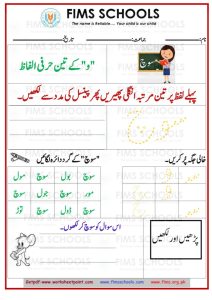 FIMS SCHOOLS
The name is Reliable... Your child is our child
نام: جماعت: تاریخ:
"و" کے تین حرفی الفاظ
سوچ
پہلے لفظ پر تین مرتبہ انگلی پھیریں پھر پینسل کی مدد سے لکھیں۔
"سوچ" کے گرد دائرہ لگائیں
خالی جگہ پُر کریں۔
سوچ بول سوچ مول
مور سوچ جول سوچ
سوچ ڈول سوچ توڑ
اس سوال کو سوچ کر لکھوں۔
پڑھیں اور لکھیں
Getpdf: www.worksheetpoint.com www.fimsschools.com www.fims.org.pk